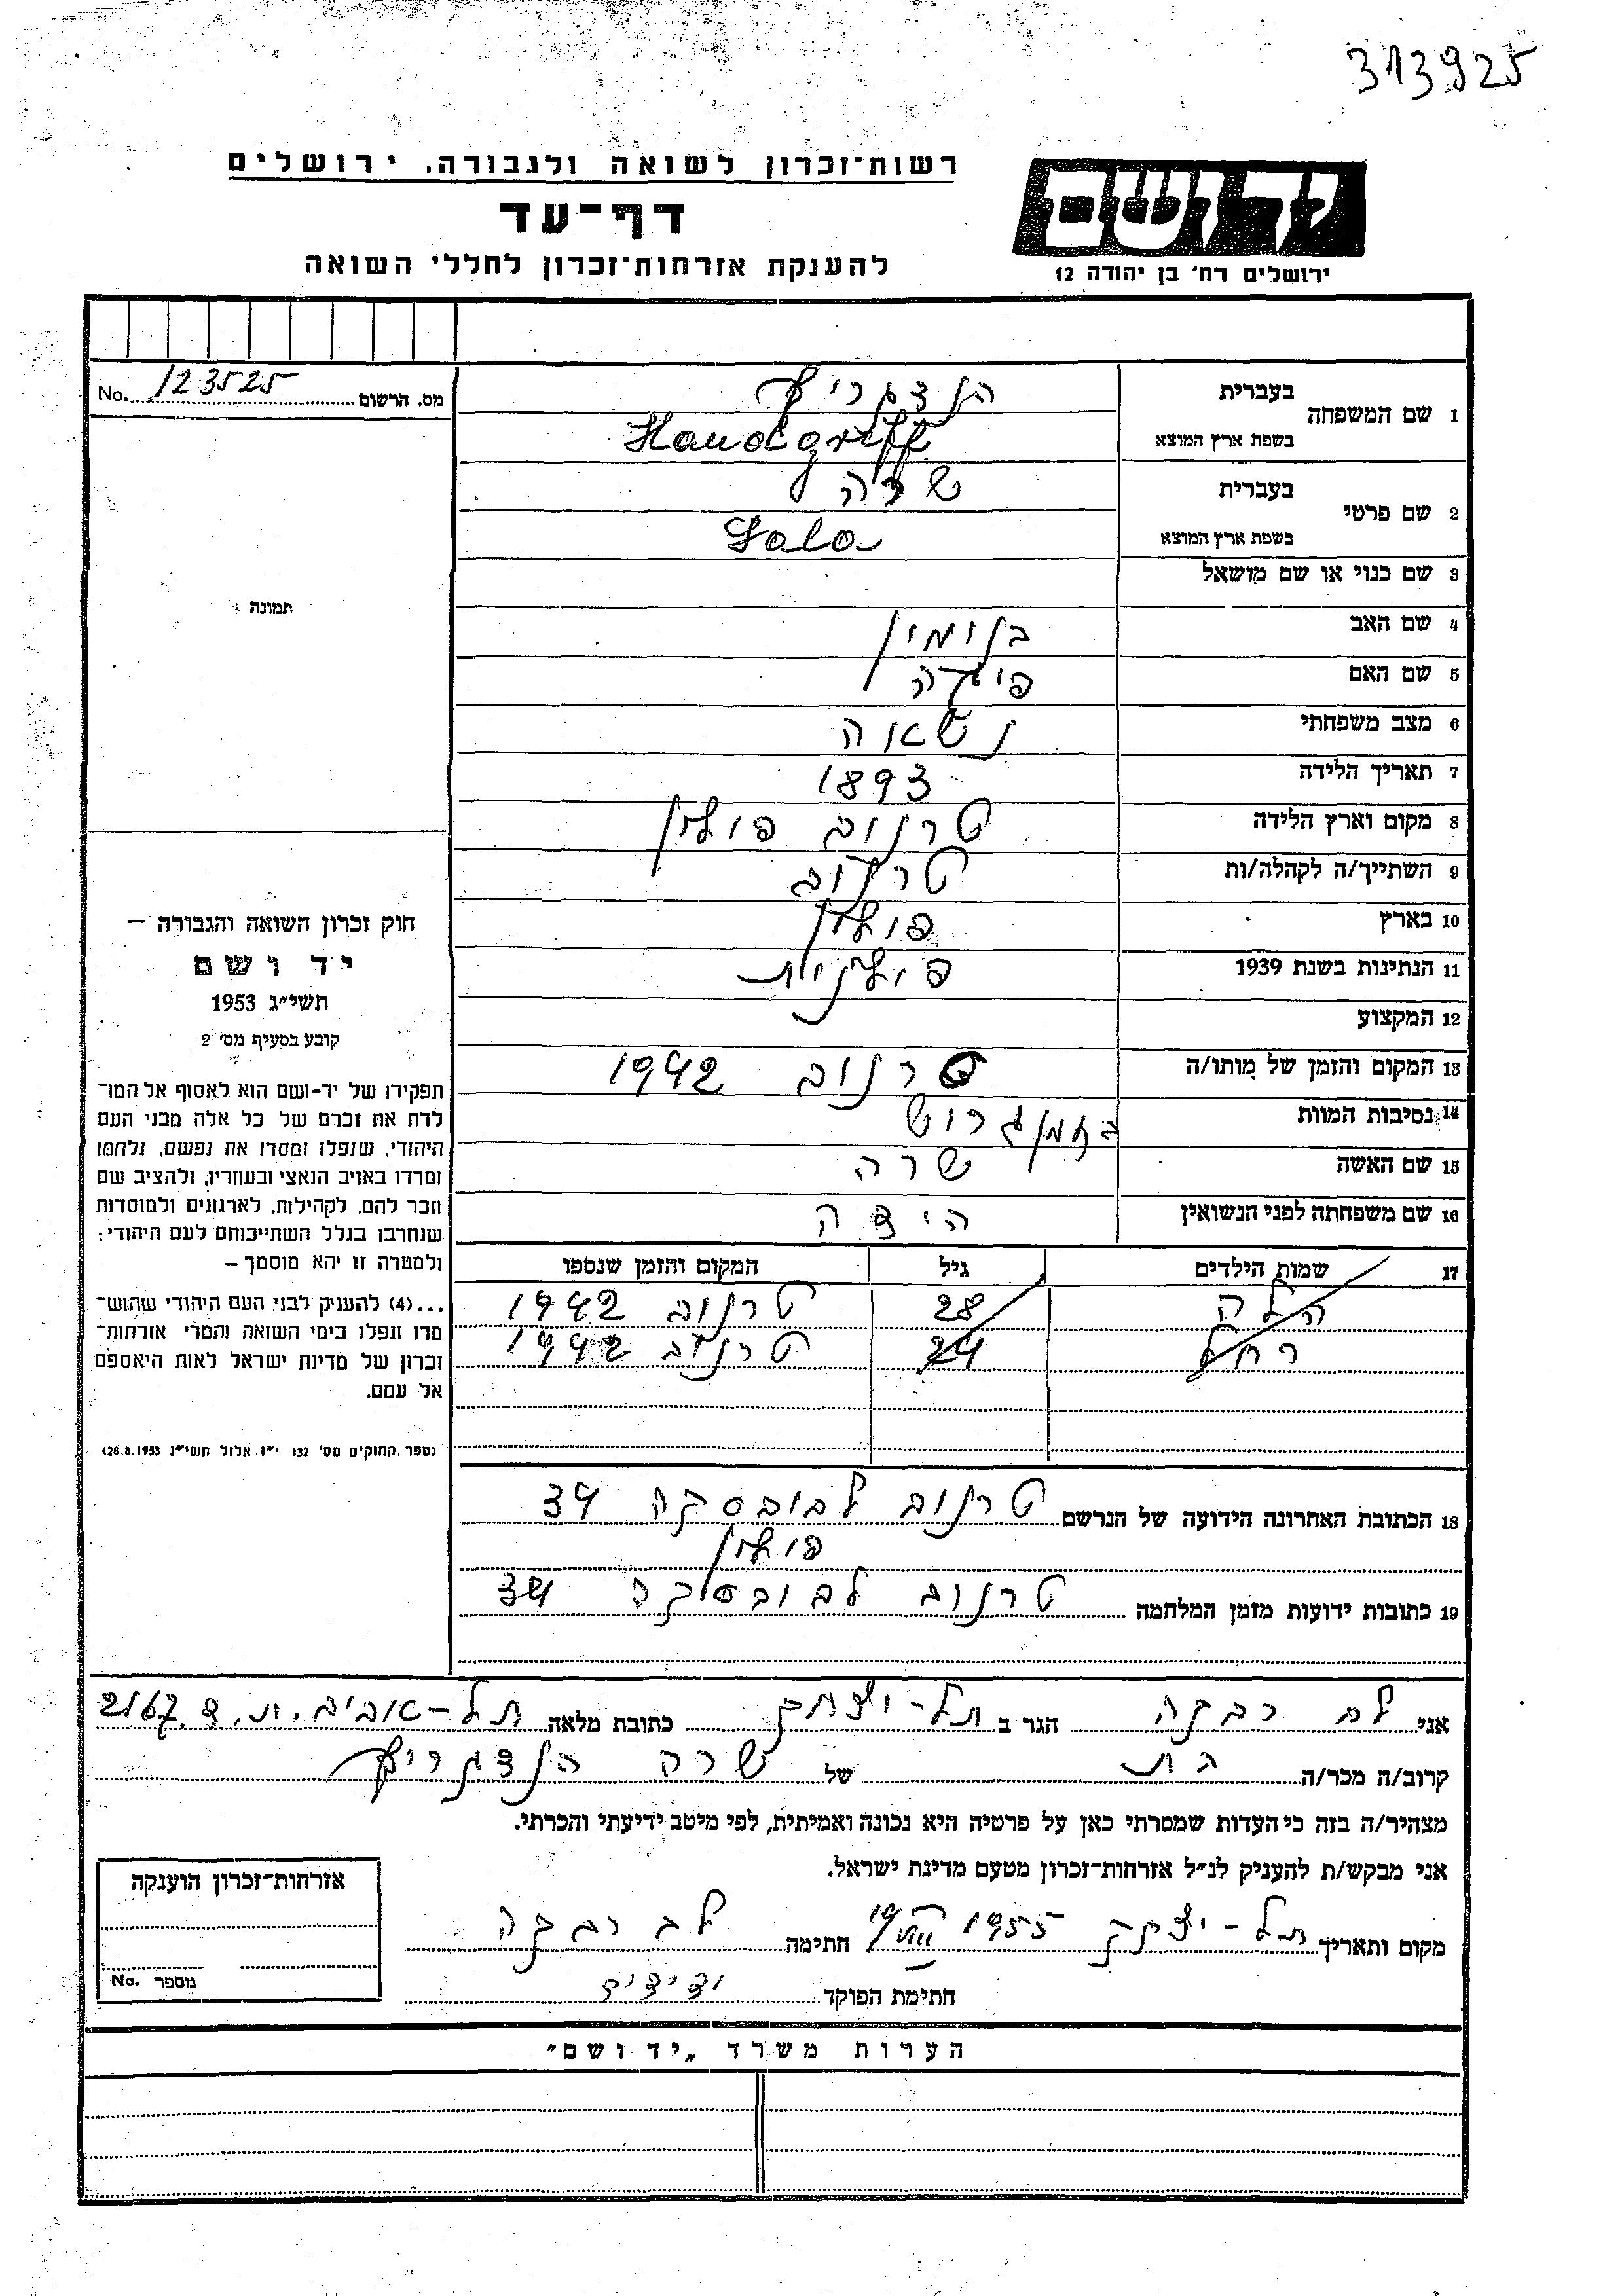 313925
רשות־זכרון לשואה ולגבורה, ירושלים
דף־עד
להענקת אזרחות־זכרון לחללי השואה
יד ושם
ירושלים רח' בן יהודה 12
מס. הרשום 123525 No.
1 שם המשפחה
בעברית הנדגריף
בשפת ארץ המוצא Handgriff
2 שם פרטי
בעברית שרה
בשפת ארץ המוצא Sala
3 שם כנוי או שם מושאל
4 שם האב בנימין
5 שם האם
6 מצב משפחתי נשואה
7 תאריך הלידה 1893
8 מקום וארץ הלידה טרנוב פולין
9 השתייך/ה לקהלה/ות טרנוב
10 בארץ פולין
11 הנתינות בשנת 1939 פולנית
12 המקצוע
13 המקום והזמן של מותו/ה טרנוב 1942
14 נסיבות המוות
15 שם האשה שרה
16 שם משפחתה לפני הנשואין
17 שמות הילדים גיל המקום והזמן שנספו
הלה 28 טרנוב 1942
רחל 24 טרנוב 1942
18 הכתובת האחרונה הידועה של הנרשם טרנוב לבובסקה 34
פולין
19 כתובות ידועות מזמן המלחמה טרנוב לבובסקה 34
תמונה
חוק זכרון השואה והגבורה –
יד ושם
תשי"ג 1953
קובע בסעיף מס' 2
תפקידו של יד-ושם הוא לאסוף אל המו־
לדת את זכרם של כל אלה מבני העם
היהודי, שנפלו ומסרו את נפשם, נלחמו
ומרדו באויב הנאצי ובעוזריו, ולהציב שם
וזכר להם, לקהילות, לארגונים ולמוסדות
שנחרבו בגלל השתייכותם לעם היהודי;
ולמטרה זו יהא מוסמך –
...(4) להעניק לבני העם היהודי שהוש־
מדו ונפלו בימי השואה והמרי אזרחות־
זכרון של מדינת ישראל לאות היאספם
אל עמם.
(ספר החוקים מס' 132 י"ז אלול תשי"ג 28.8.1953)
אני לב רבקה הגר ב תל-יצחק כתובת מלאה תל-אביב. ת. ד. 2167
קרוב/ה מכר/ה בת של שרה הנדגריף
מצהיר/ה בזה כי העדות שמסרתי כאן על פרטיה היא נכונה ואמיתית, לפי מיטב ידיעתי והכרתי.
אני מבקש/ת להעניק לנ"ל אזרחות־זכרון מטעם מדינת ישראל.
מקום ותאריך תל-יצחק 19/VIII 1955 חתימה לב רבקה
חתימת הפוקד
אזרחות־זכרון הוענקה
מספר No.
הערות משרד „יד ושם"